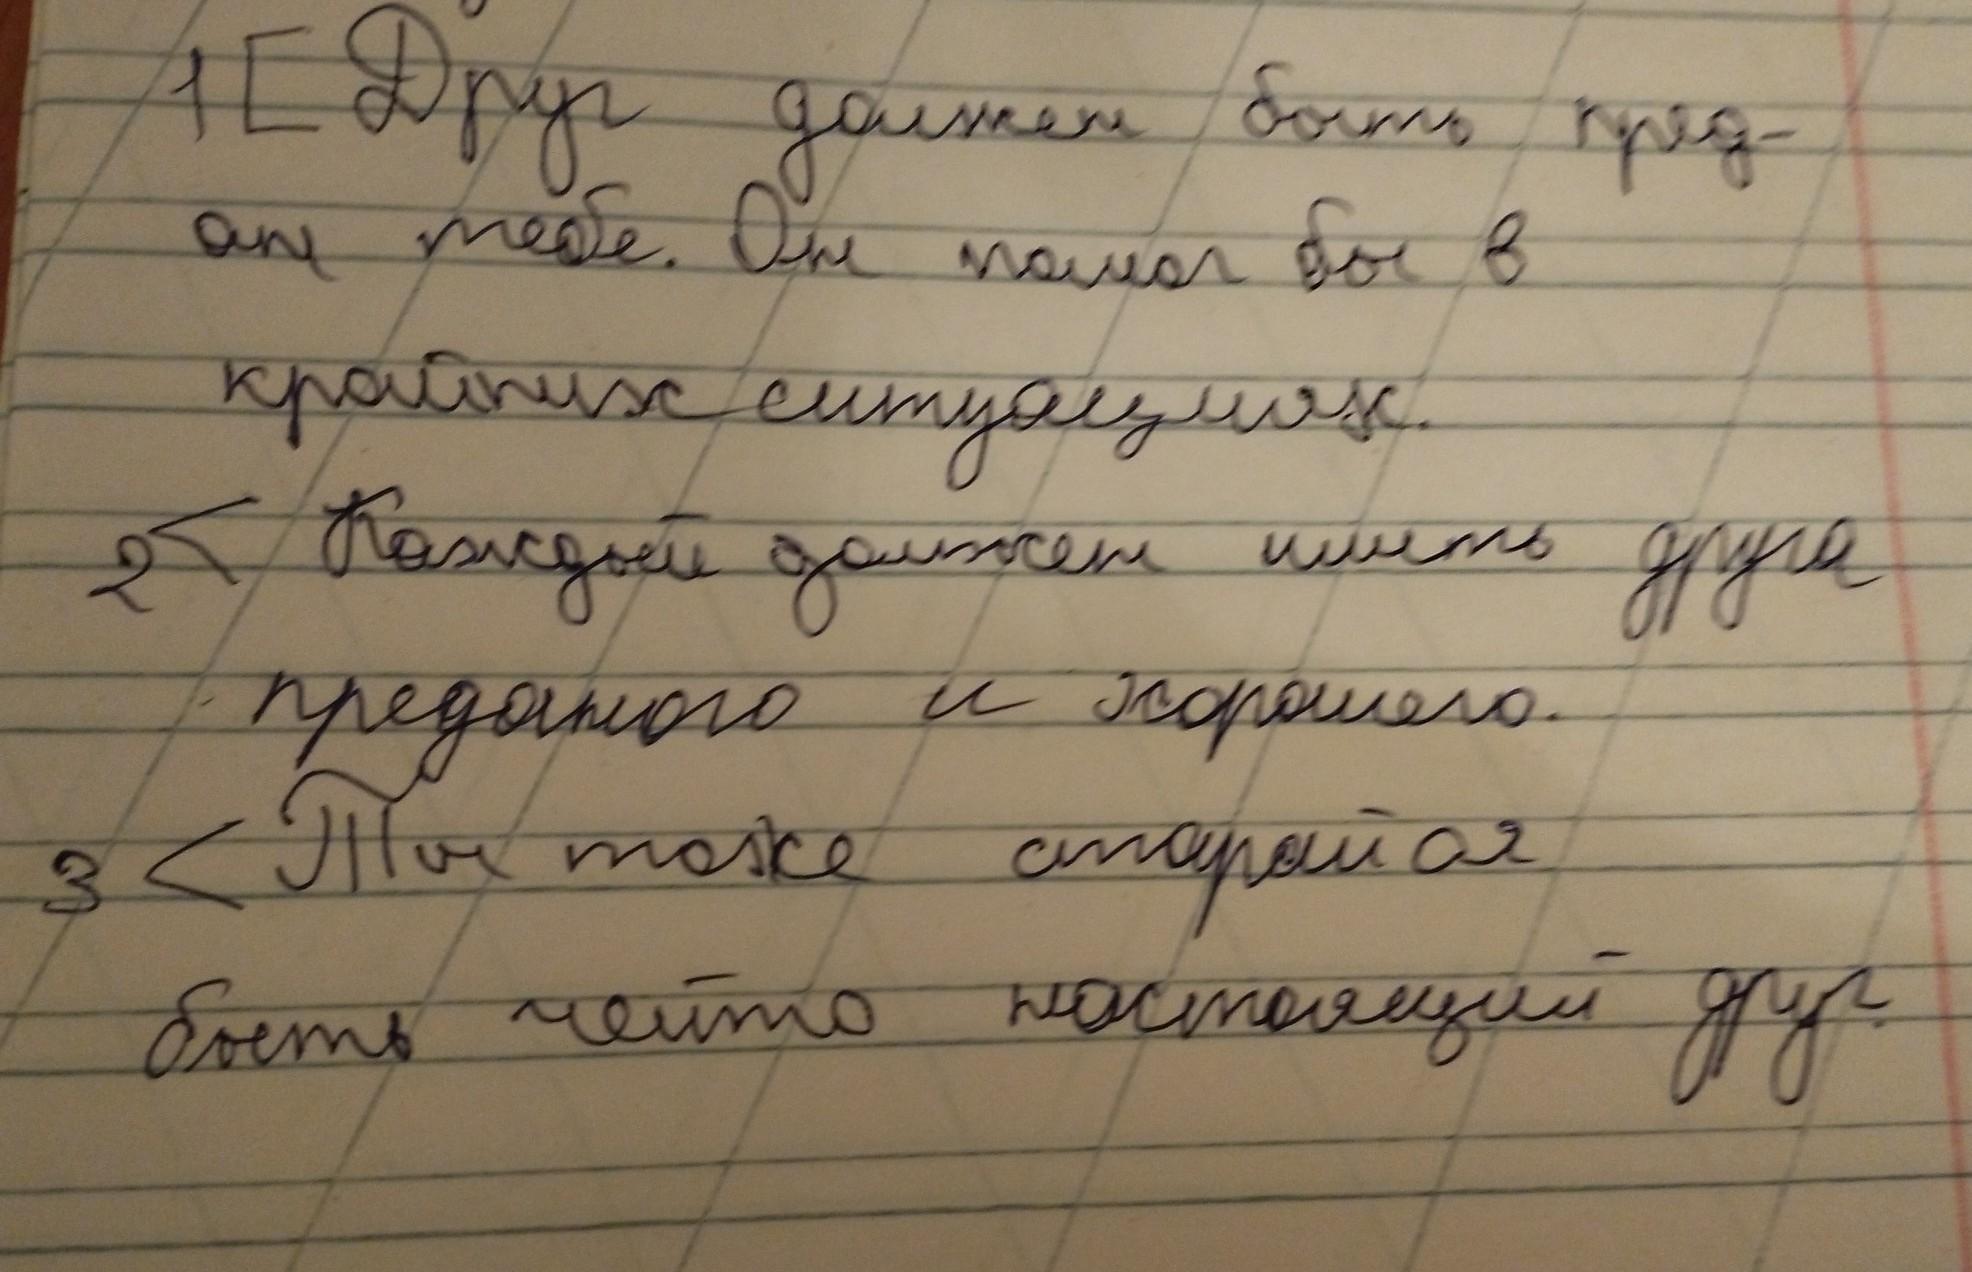 1 [ Друг должен быть пред-
ан тебе. Он помог бы в
крайних ситуациях.
2 < Каждый должен иметь друга
преданого и хорошего.
3 < Ты тоже старайся
быть чейто настоящий друг.